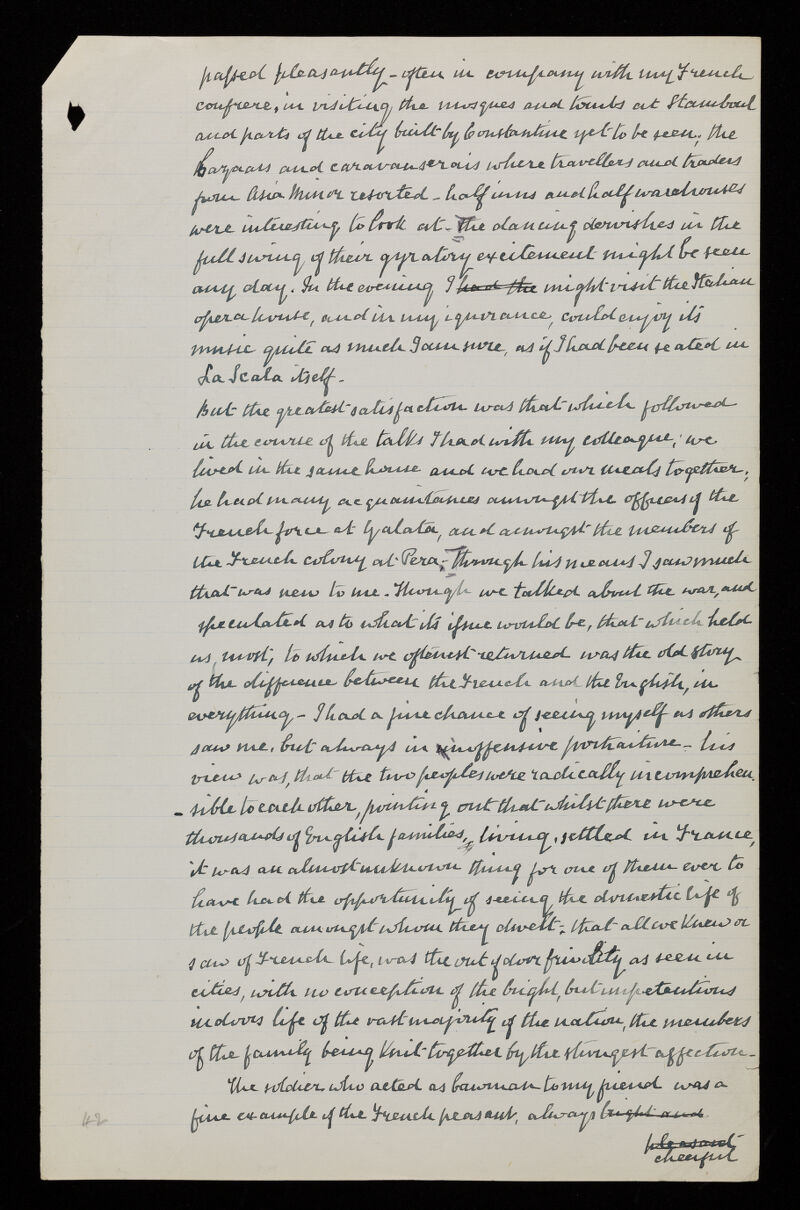 passed pleasantly - often in company with my French
confrere, in visiting the mosques and tombs at Stamboul
and parts of the city built by Constantine yet to be seen; the
Bazaars and caravanserais where travellers and traders
from Asia Minor resorted - half inns and half warehouses
were interesting to look at - The dancing dervishes in the
full swing of their gyratory excitement might be seen
any day. In the evening I had the might visit the Italian
opera house, and in my ignorance, could enjoy its
music quite as much I am sure, as if I had been seated in
La Scala itself -
But the greatest satisfaction was that which followed
in the course of the talks I had with my colleague; we
lived in the same house and we had our meals together;
he had many acquaintances amongst the officers of the
French force at Galata, and amongst the members of
the French colony at Pera; - Through his means I saw much
that was new to me. Though we talked about the war, and
speculated as to what its issue would be, that which held
us, most, to which we oftenest returned was the old story
of the difference between the French and the English, in
everything - I had a fine chance of seeing myself as others
saw me, but always in inoffensive portraiture - his
view was, that the two peoples were radically incomprehen
-sible to each other, pointing out that whilst there were
thousands of English families, living, settled in France,
it was an almost unknown thing for one of them ever to
have had the opportunity of seeing the domestic life of
the people amongst whom they dwelt; that all we knew or
saw of French life, was the out of door frivolity as seen in
cities, with no conception of the bright, but unpretentious
indoors life of the vast majority of the nation, the members
of the family being knit together by the strongest affection -
The soldier who acted as bawman to my friend was a
fine example of the French peasant, always bright and
pleasant
cheerful
42